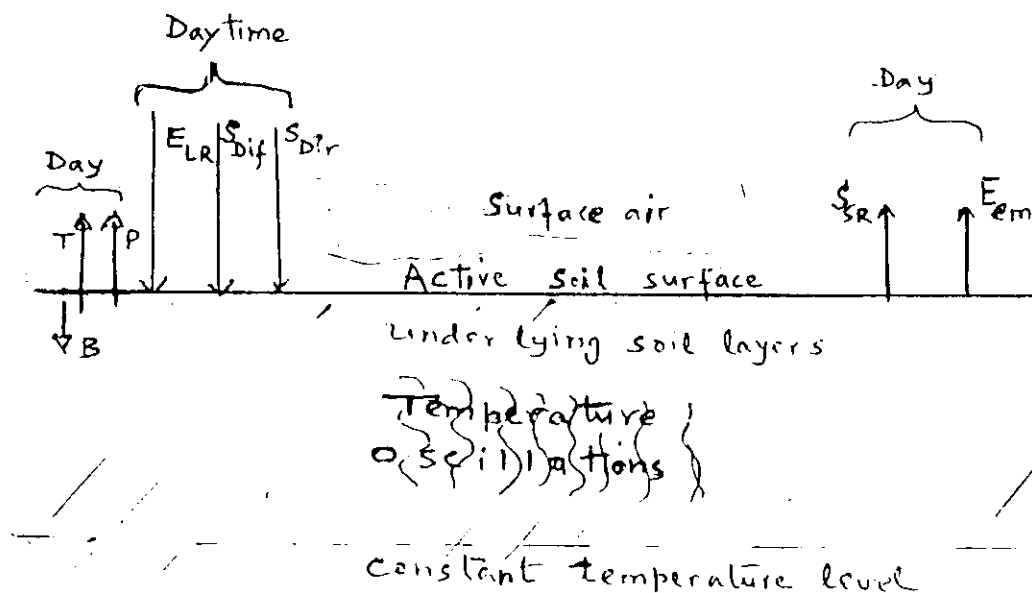 Daytime
Day
E_LR S_Dif S_Dir
Day
T P
S_SR E_em
Surface air
Active soil surface
B
Underlying soil layers
Temperature
oscillations
constant temperature level